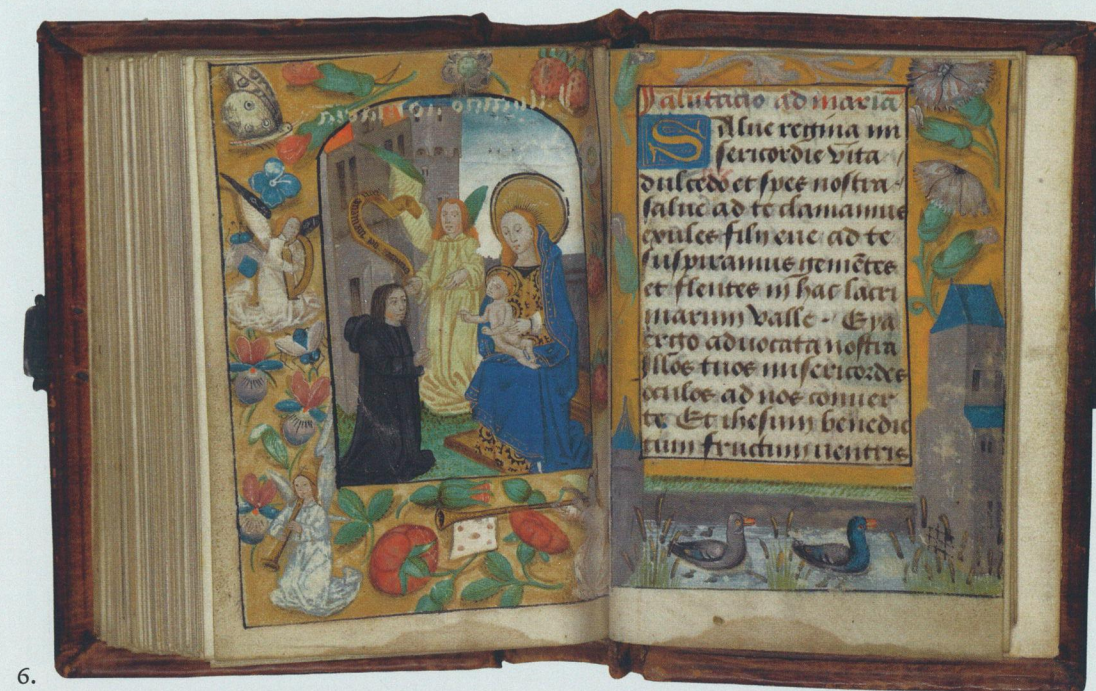 Salutacio ad mariã
Salue regina mi
sericordie vita
dulcedo et spes nostra
salue ad te clamamus
exules filij eue ad te
suspiramus gemẽtes
et flentes in hac lacri
marum valle. Eya
ergo aduocata nostra
Illos tuos misericordes
oculos ad nos conuer
te Et ihesum benedic
tum fructum uentris
6.